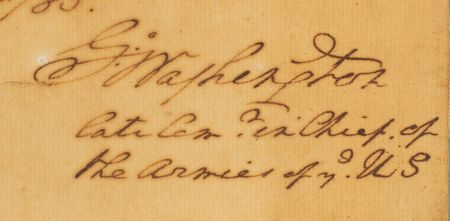 83.
G:Washington
late Com.r in Chief. of
the Armies of y.e U.S